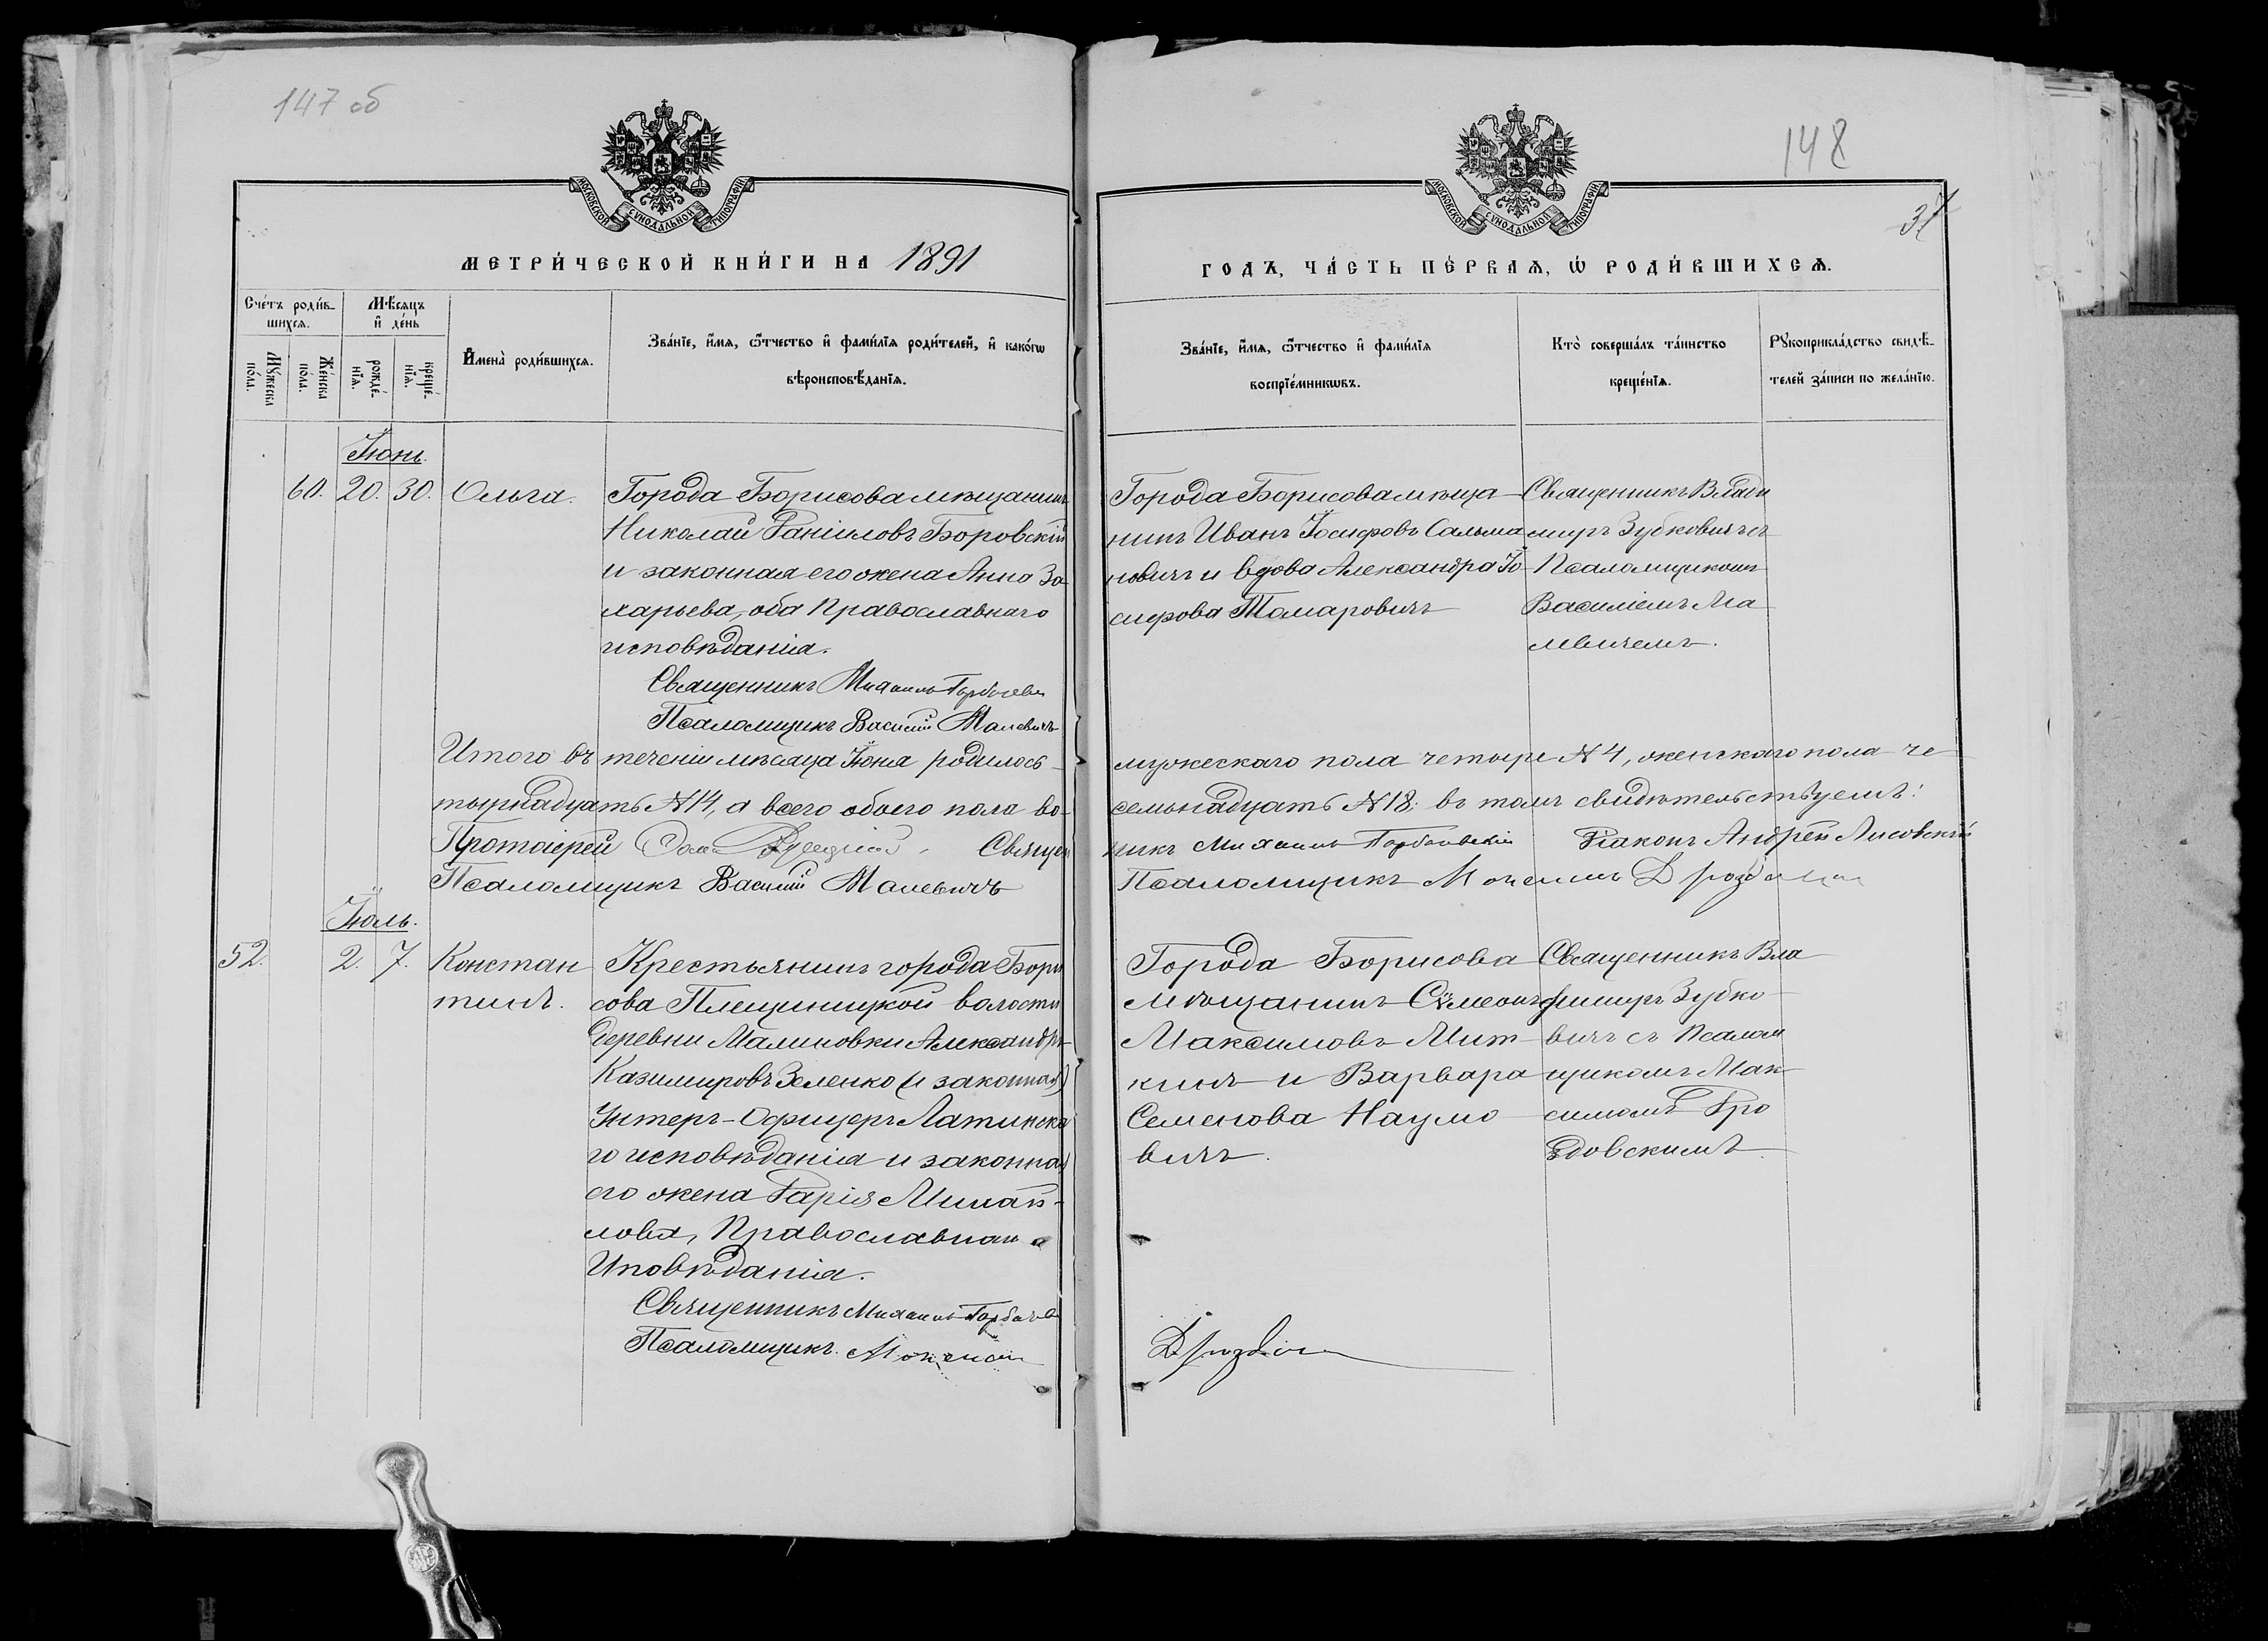 147 об
148
37
МОСКОВСКОЙ СУНОДАЛЬНОЙ ТИПОГРАФІИ
МОСКОВСКОЙ СУНОДАЛЬНОЙ ТИПОГРАФІИ
МЕТРИ́ЧЕСКОЙ КНИ́ГИ НА 1891
ГОДЪ, ЧА́СТЬ ПЕ́РВАЯ, Ѡ҆ РОДИ́ВШИХСЯ.
Сче́тъ роди́в-
шихся.
Мꙋ́жеска
по́ла.
Же́нска
по́ла.
Мѣ́сяцъ
и҆ де́нь
рожде́-
нїя.
креще́-
нїя.
И҆мена̀ роди́вшихся.
Зва́нїе, и҆́мя, ѻ҆́тчество и҆ фами́лїя роди́телей, и҆ како́гѡ
вѣроисповѣ́данїя.
Зва́нїе, и҆́мя, ѻ҆́тчество и҆ фами́лїя
воспрїе́мникѡвъ.
Кто̀ соверша́лъ та́инство
креще́нїя.
Рꙋкоприкла́дство свидѣ́-
телей за́писи по жела́нїю.
Іюнь.
60. 20. 30. Ольга.
Города Борисова мѣщанинъ
Николай Даніиловъ Боровскій
и законная его жена Анна За
харьева, оба Православнаго
исповѣданія.
Священникъ Михаилъ
Псаломщикъ Василій Малевичъ
Города Борисова мѣща
нинъ Иванъ Іосифовъ Сальма
новичъ и вдова Александра Іо
сифова Томаровичъ
Священникъ Влади
миръ Зубковичъ съ
Псаломщикомъ
Василіемъ Ма
левичемъ.
Итого въ теченіи мѣсяца Іюня родилось мужескаго пола четыре № 4, женскаго пола че
тырнадцать № 14, а всего обоего пола во семьнадцать № 18; въ томъ свидѣтельствуемъ:
Протоіерей Священ никъ Михаилъ Діаконъ Андрей Лисовскій
Псаломщикъ Василій Малевичъ Псаломщикъ
Іюль.
52. 2. 7. Констан
тинъ.
Крестьянинъ города Бори
сова Плещиницкой волости
деревни Малиновки Александръ
Казимировъ Зеленко (и законная)
Унтеръ-Офицеръ Латинска
го исповѣданія и законная
его жена Дарія Михай-
лова, Православнаго
Иповѣданія.
Священникъ Михаилъ
Псаломщикъ
Города Борисова
Мѣщанинъ Сѵмеонъ
Максимовъ Мит
кинъ и Варвара
Семенова Наумо
вичъ.
Священникъ Вла
димиръ Зубко
вичъ съ Псалом
щикомъ Мак
симомъ Дро
здовскимъ